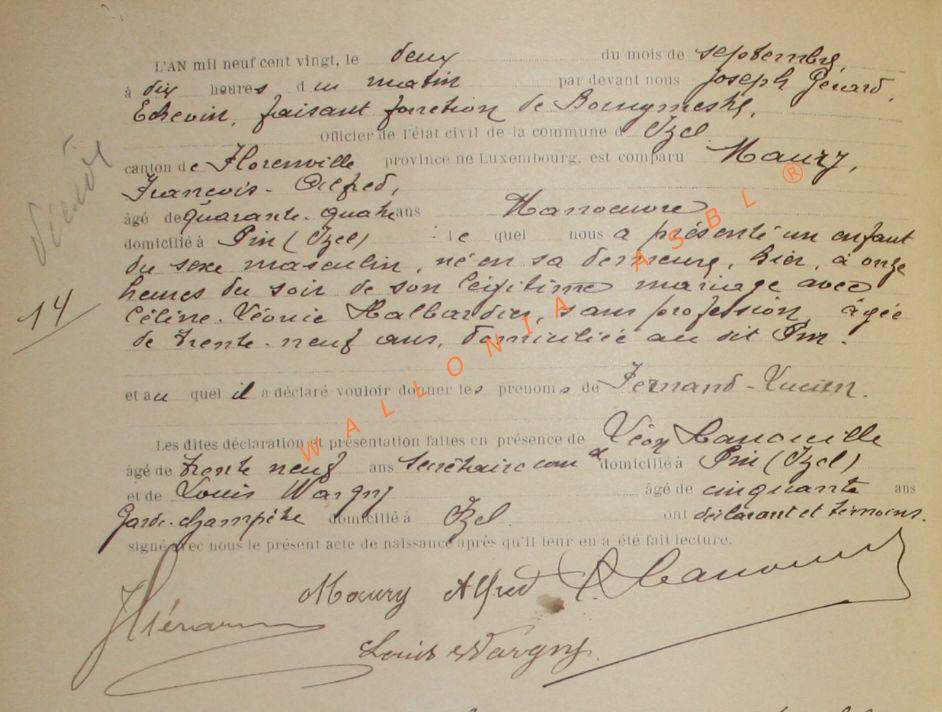 L'AN mil neuf cent vingt, le deux du mois de septembre,
à dix heures du matin par devant nous Joseph Gérard,
Echevin, faisant fonction de Bourgmestre,
Officier de l'état civil de la commune d'Izel
canton de Florenville province de Luxembourg, est comparu Maury,
François-Alfred,
âgé de quarante-quatre ans Manoeuvre
domicilié à Pin (Izel) le quel nous a présenté un enfant
du sexe masculin, né en sa demeure, hier, à onze
14
heures du soir de son légitime mariage avec
Céline-Léonie Halbardier, sans profession, âgée
de trente-neuf ans, domiciliée au dit Pin.
et au quel il a déclaré vouloir donner les prénoms de Fernand-Lucien.
Les dites déclaration et présentation faites en présence de Léon Hanouille
âgé de trente neuf ans Secrétaire comal domicilié à Pin (Izel)
et de Louis Wargny âgé de cinquante ans
Garde-champêtre domicilié à Izel ont déclarant et témoins
signé avec nous le présent acte de naissance après qu'il leur en a été fait lecture.
Maury Alfred
Louis Wargny
WALLONIA ASBL ®